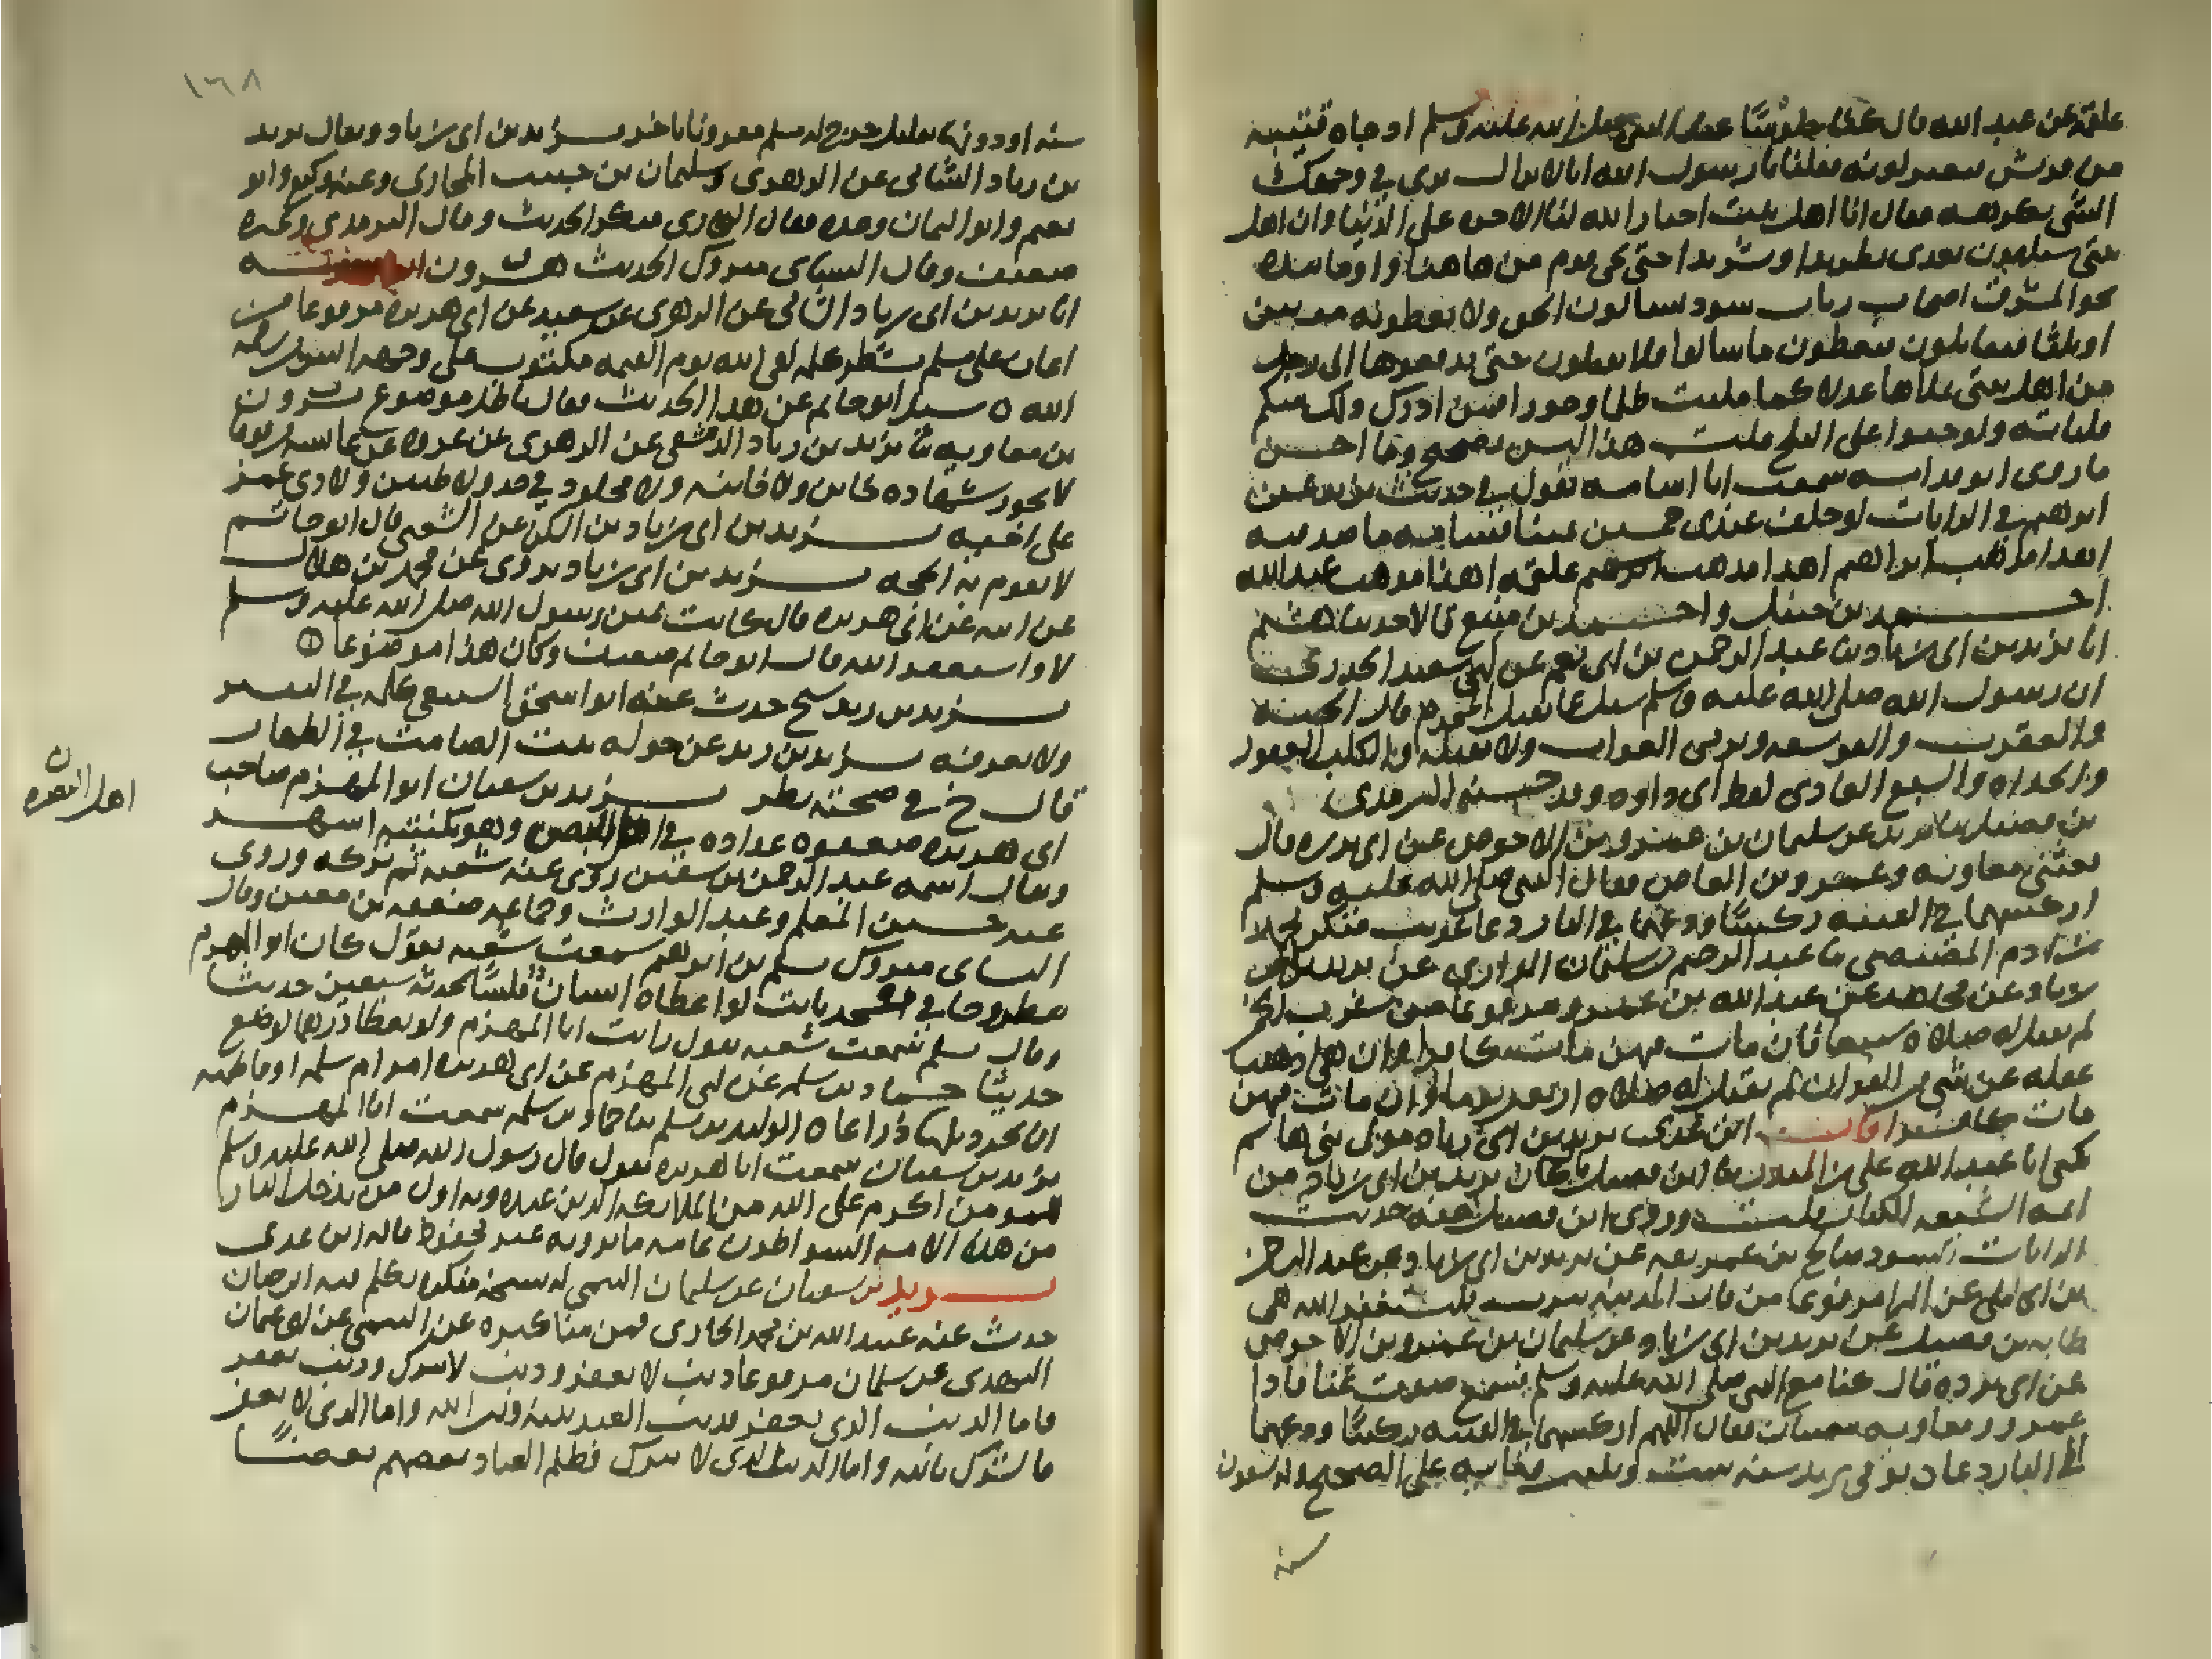 علقمة عن عبد الله قال كنا جلوسا عند النبي صلى الله عليه وسلم اذ جاه فتيه
من قريش فتغير لونه فقلنا يا رسول الله انا لا نزال نرى في وجهك
الشي نكرهه فقال انا اهل بيت اختار الله لنا الاخره على الدنيا وان اهل
بيتي سيلقون بعدي تطريدا وتشريدا حتى يجي قوم من هاهنا واوما بيده
نحو المشرق اصحاب رايات سود يسالون الحق ولا يعطونه مرتين
او ثلثا فيقاتلون فيعطون ما سالوا فلا يقبلون حتى يدفعوها الى رجل
من اهل بيتي يملاها عدلا كما مليت ظلما وجورا فمن ادرك ذلك منكم
فلياته ولو حبوا على الثلج قلت هذا ليس بصحيح وما احسن
ما روى ابو قدامه سمعت ابا اسامه يقول في حديث يزيد عن
ابراهيم في الرايات لو حلف عندي خمسين يمينا قسامه ما صدقته
اهذا مذهب ابراهيم اهذا مذهب علقمه اهذا مذهب عبد الله
احمد بن حنبل واحمد بن منيع قالا حدثنا هشيم
انا يزيد بن ابي زياد ثنا عبد الرحمن بن ابي نعم عن ابي سعيد الخدري
ان رسول الله صلى الله عليه وسلم سئل عما يقتل المحرم قال الحيه
والعقرب والفويسقه ويرمي الغراب ولا يقتله والكلب العقور
والحداه والسبع العادي لفظ ابي داود وقد حسنه الترمذي
بن فضيل ثنا يزيد عن سليمان بن عمرو بن الاحوص عن ابي برزه قال
تغنى معاويه وعمرو بن العاص فقال النبي صلى الله عليه وسلم
اركسهما في الفتنه ركسا ودعهما في النار دعا غريب منكر
ادم المصيصي ثنا عبد الرحيم بن سليمان الرازي عن يزيد بن ابي
زياد عن مجاهد عن عبد الله بن عمرو مرفوعا من شرب الخمر
لم يقبل له صلاه سبعا فان مات فيهن مات كافرا وان هي اذهبت
عقله عن شي من القران لم يقبل له صلاه اربعين يوما وان مات فيهن
مات كافرا قال ابن عدي يزيد بن ابي زياد مولى بني هاشم
يكنى ابا عبد الله علي بن المنذر ثنا ابن فضيل كان يزيد بن ابي زياد من
ايمه الشيعه الكبار قلت وروى ابن فضيل عنه حديث
الرايات السود صالح بن عمر ثقه عن يزيد بن ابي زياد عن عبد الرحمن
بن ابي ليلى عن البرا مرفوعا من قال للمدينه يثرب فليستغفر الله هي
طابه بن فضيل عن يزيد بن ابي زياد عن سليمان بن عمرو بن الاحوص
عن ابي برزه قال كنا مع النبي صلى الله عليه وسلم فسمع صوت غنا فاذا
عمرو ومعاويه يتغنيان فقال اللهم اركسهما في الفتنه ركسا ودعهما
الى النار دعا توفي يزيد سنه ست وثلثين ومايه على الصحيح وله تسعون
سنه
١٦٨
سنه او دونها بقليل خرج له مسلم مقرونا باخر يزيد بن ابي زياد ويقال يزيد
بن زياد الشامي عن الزهري وسليمان بن حبيب المحاربي وعنه وكيع وابو
نعيم وابو اليمان وعده فقال البخاري منكر الحديث وقال الترمذي وغيره
ضعيف وقال النسائي متروك الحديث
انا يزيد بن ابي زياد الشامي عن الزهري عن سعيد عن ابي هريره مرفوعا من
اعان على مسلم بشطر كلمه لقي الله يوم القيمه مكتوب على وجهه ايس من رحمة
الله سئل ابو حاتم عن هذا الحديث فقال باطل موضوع مروان
بن معاويه ثنا يزيد بن زياد الدمشقي عن الزهري عن عروه عن عايشه مرفوعا
لا يجوز شهاده خاين ولا خاينه ولا مجلود في حد ولا ظنين ولا ذي غمر
على اخيه يزيد بن ابي زياد بن السكن عن الشعبي قال ابو حاتم
لا يقوم به الحجه يزيد بن ابي زياد يروى عن محمد بن هلال
عن ابيه عن ابي هريره قال كانت يمين رسول الله صلى الله عليه وسلم
لا واستغفر الله قال ابو حاتم ضعيف وكان هذا موضوعا
يزيد بن زيد شيخ حدث عنه ابو اسحق السبيعي كلمه في التفسير
ولا يعرف يزيد بن زيد عن خوله بنت الصامت في الظهار
قال خ في صحته نظر يزيد بن سفيان ابو المهزم صاحب
ابي هريره ضعفوه عداده في اهل البصره وهو بكنيته اشهر
اهل البصره ن
ويقال اسمه عبد الرحمن بن سفين روى عنه شعبه ثم تركه وروى
عنه حسين المعلم وعبد الوارث وجماعه ضعفه بن معين وقال
النسائي متروك مسلم بن ابراهيم سمعت شعبه يقول كان ابو المهزم
مطروحا في مسجد ثابت لو اعطاه انسان فلسا لحدثه سبعين حديثا
وقال مسلم سمعت شعبه يقول رايت ابا المهزم ولو يعطى درهما لوضع
حديثا حماد بن سلمه عن ابي المهزم عن ابي هريره امر ام سلمه او فاطمه
ان تجر ذيلها ذراعا الوليد بن مسلم ثنا حماد بن سلمه سمعت ابا المهزم
يزيد بن سفيان سمعت ابا هريره يقول قال رسول الله صلى الله عليه وسلم
المومن اكرم على الله من الملايكه الذين عنده وبه اول من يدخل النار
من هذه الامه السواطون عامه ما يرويه غير محفوظ قاله ابن عدي
يزيد بن سفيان عن سليمان التيمي له نسخه منكره تكلم فيه ابن حبان
حدث عنه عبيد الله بن محمد الحارثي فمن مناكيره عن التيمي عن ابي عثمان
النهدي عن سلمان مرفوعا ذنب لا يغفر وذنب لا يترك وذنب يغفر
فاما الذنب الذي يغفر فذنب العبد بينه وبين الله واما الذي لا يغفر
فالشرك بالله واما الذنب الذي لا يترك فظلم العباد بعضهم بعضا